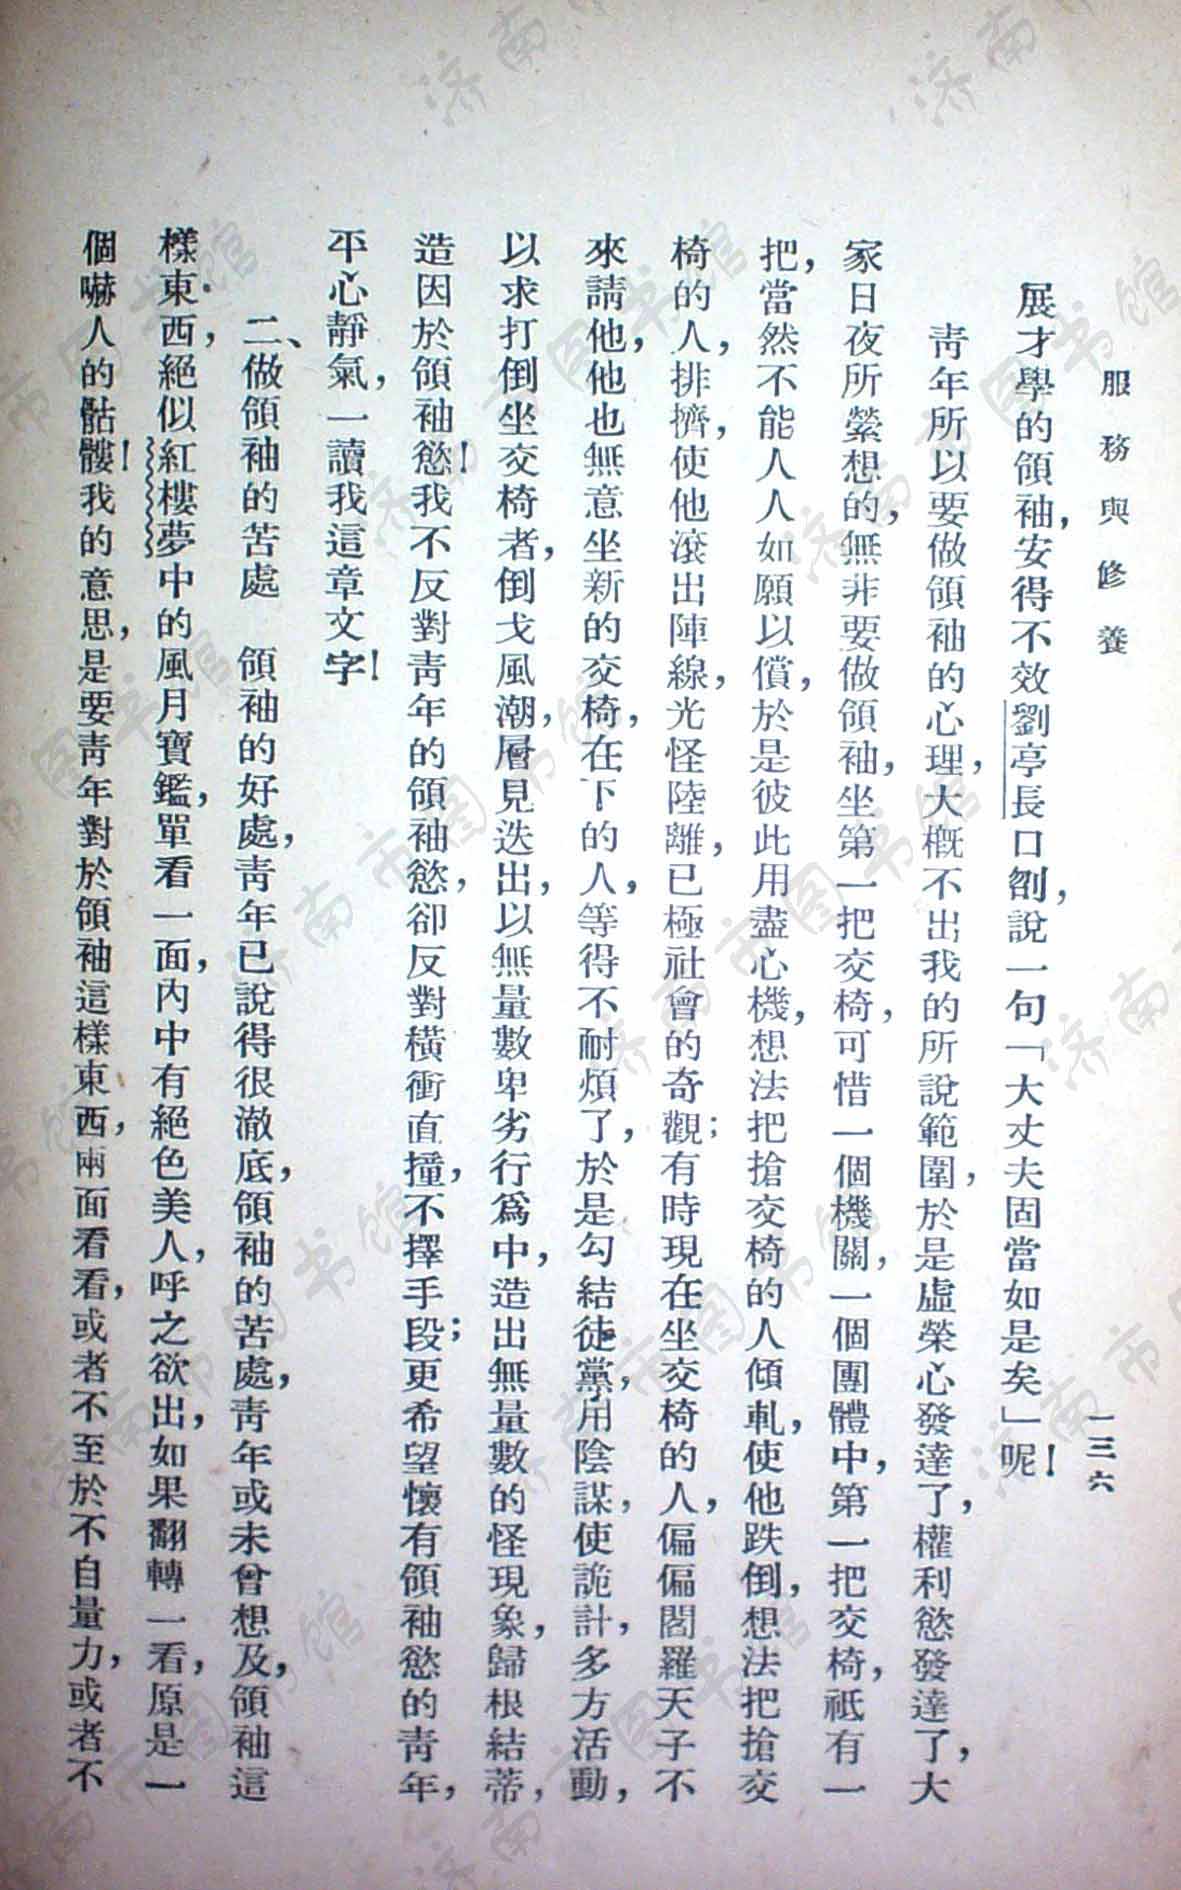 服務與修養
一三六
展才學的領袖，安得不效劉亭長口劄，說一句「大丈夫固當如是矣」呢！
靑年所以要做領袖的心理，大槪不出我的所說範圍，於是虛榮心發達了，權利慾發達了，大
家日夜所縈想的，無非要做領袖，坐第一把交椅，可惜一個機關，一個團體中，第一把交椅，祗有一
把，當然不能人人如願以償，於是彼此用盡心機，想法把搶交椅的人傾軋，使他跌倒，想法把搶交
椅的人，排擠，使他滾出陣線，光怪陸離，已極社會的奇觀；有時現在坐交椅的人，偏偏閻羅天子不
來請他，他也無意坐新的交椅，在下的人，等得不耐煩了，於是勾結徒黨，用陰謀，使詭計，多方活動，
以求打倒坐交椅者，倒戈風潮，層見迭出，以無量數卑劣行爲中，造出無量數的怪現象，歸根結蒂，
造因於領袖慾！我不反對靑年的領袖慾，卻反對橫衝直撞，不擇手段；更希望懷有領袖慾的靑年，
平心靜氣，一讀我這章文字！
二、做領袖的苦處　領袖的好處，靑年已說得很澈底，領袖的苦處，靑年或未曾想及，領袖這
樣東西，絕似紅樓夢中的風月寶鑑，單看一面，內中有絕色美人，呼之欲出，如果翻轉一看，原是一
個嚇人的骷髏！我的意思，是要靑年對於領袖這樣東西，兩面看看，或者不至於不自量力，或者不
济南市图书馆